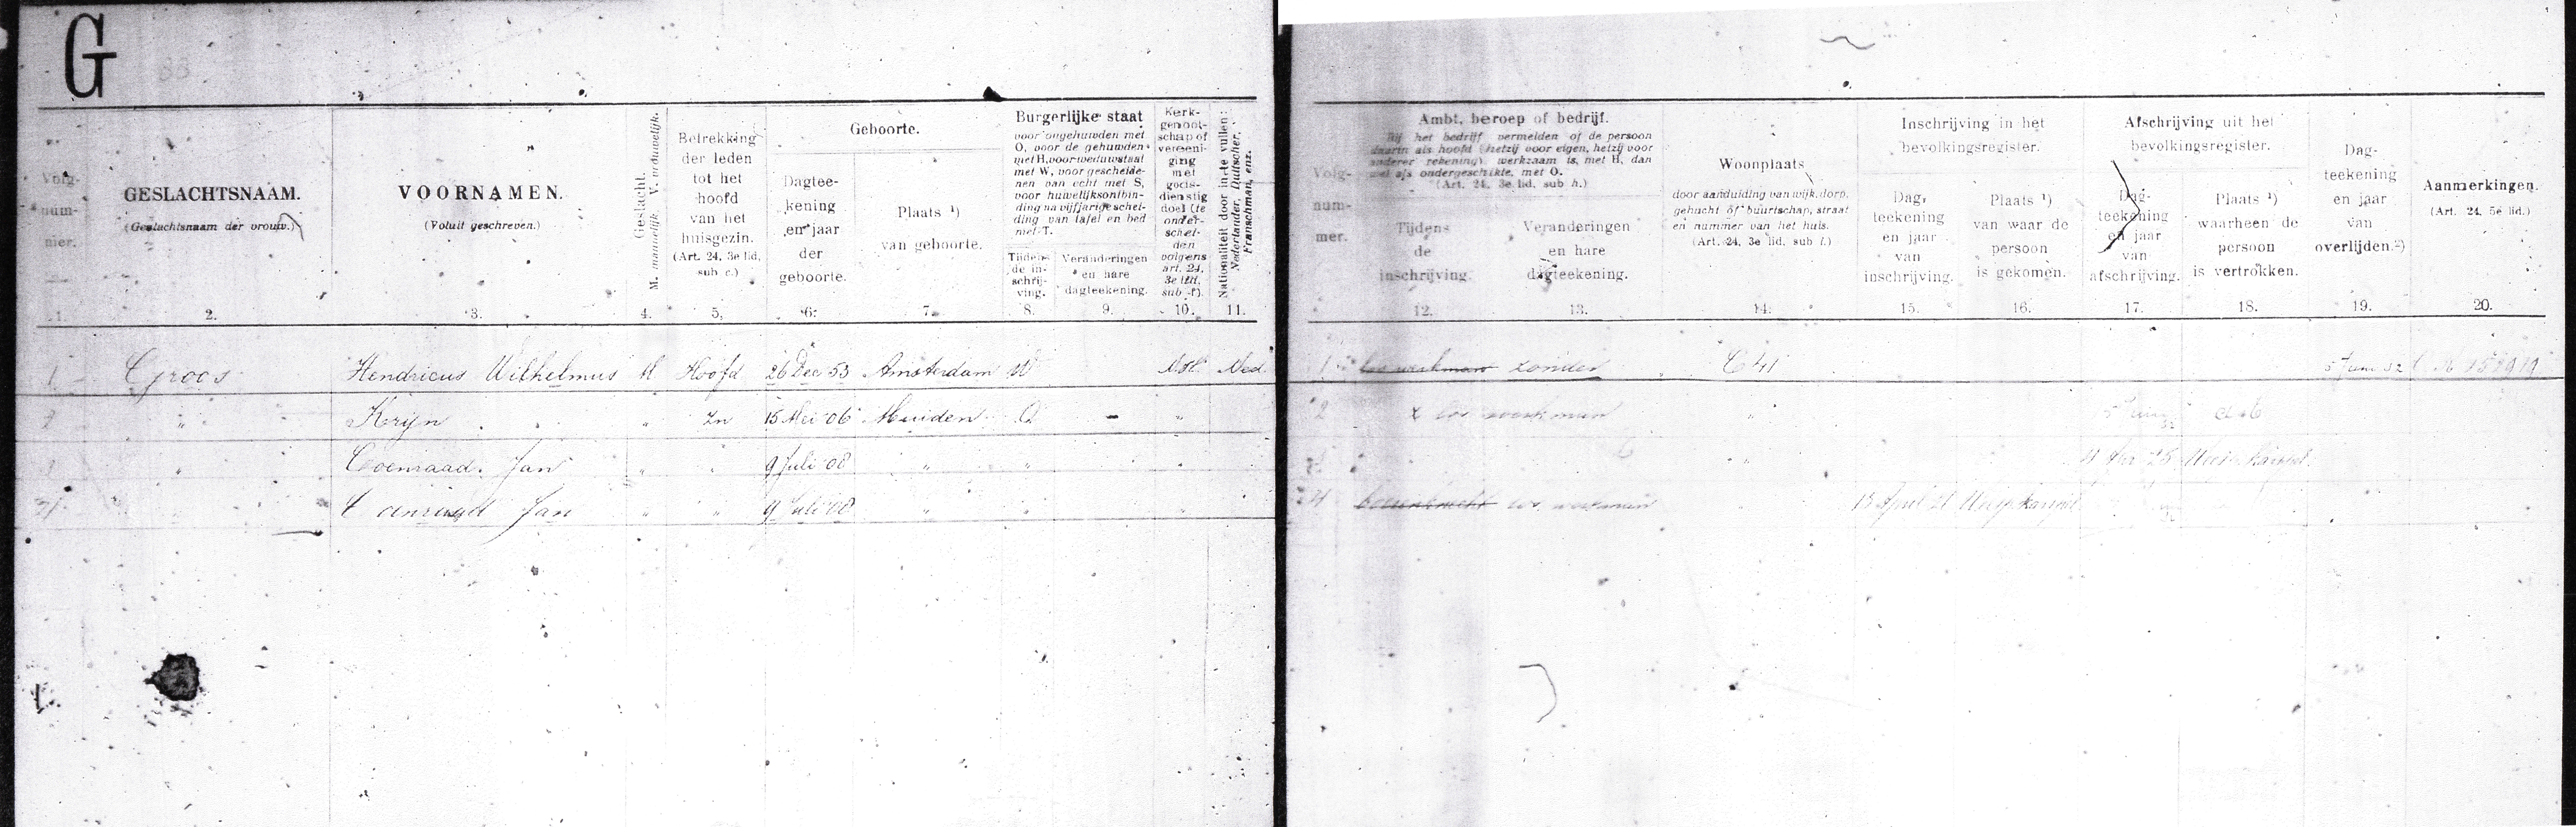 G
88
Volg-
num-
mer.
1.
GESLACHTSNAAM.
(Geslachtsnaam der vrouw.)
2.
VOORNAMEN.
(Voluit geschreven.)
3.
Geslacht.
M. mannelijk V. vrouwelijk.
4.
Betrekking
der leden
tot het
hoofd
van het
huisgezin.
(Art. 24, 3e lid,
sub c.)
5.
Geboorte.
Dagtee-
kening
en jaar
der
geboorte.
6.
Plaats ¹)
van geboorte.
7.
Burgerlijke staat
voor ongehuwden met
O, voor de gehuwden
met H, voor weduwstaat
met W, voor gescheide-
nen van echt met S,
voor huwelijksontbin-
ding na vijfjarige schei-
ding van tafel en bed
met T.
Tijdens
de in-
schrij-
ving.
8.
Veranderingen
en hare
dagteekening.
9.
Kerk-
genoot-
schap of
vereeni-
ging
met
gods-
dienstig
doel (te
onder-
schei-
den
volgens
art. 24,
3e lid,
sub f).
10.
Nationaliteit door in te vullen:
Nederlander, Duitscher,
Franschman, enz.
11.
1 Groos Hendricus Wilhelmus M Hoofd 26 Dec 53 Amsterdam W N.H. Ned.
2 " Krijn " Zn 15 Mei 06 Muiden O - "
" Coenraad Jan " " 9 Juli 08 " " "
" Coenraad Jan " " 9 Juli 08 " " "
Volg-
num-
mer.
Ambt, beroep of bedrijf.
Bij het bedrijf vermelden of de persoon
daarin als hoofd (hetzij voor eigen, hetzij voor
anderer rekening) werkzaam is, met H, dan
wel als ondergeschikte, met O.
(Art. 24, 3e lid, sub h.)
Tijdens
de
inschrijving.
12.
Veranderingen
en hare
dagteekening.
13.
Woonplaats
door aanduiding van wijk, dorp,
gehucht of buurtschap, straat
en nummer van het huis.
(Art. 24, 3e lid, sub i.)
14.
Inschrijving in het
bevolkingsregister.
Dag-
teekening
en jaar
van
inschrijving.
15.
Plaats ¹)
van waar de
persoon
is gekomen.
16.
Afschrijving uit het
bevolkingsregister.
Dag-
teekening
en jaar
van
afschrijving.
17.
Plaats ¹)
waarheen de
persoon
is vertrokken.
18.
Dag-
teekening
en jaar
van
overlijden.²)
19.
Aanmerkingen.
(Art. 24, 5e lid.)
20.
1 los werkman zonder C 41 5 Juni 32
2 x los werkman "
"
4 boerenknecht los werkman 13 April 21 Weespkarspel